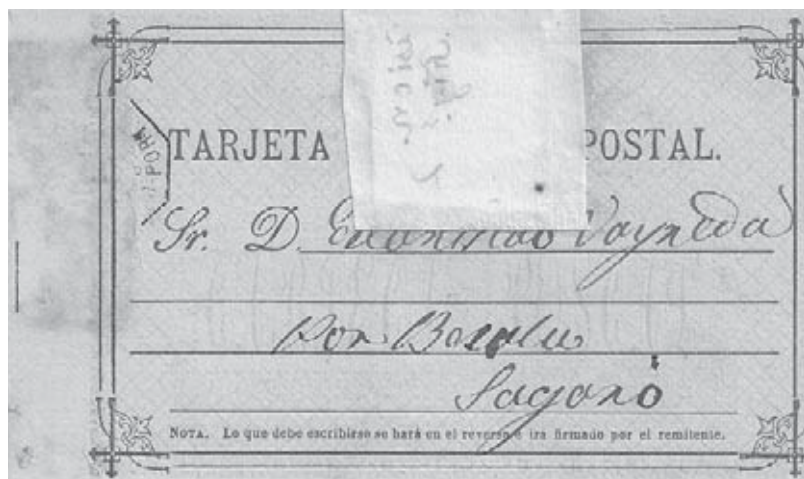 TARJETA POSTAL.
Sr. D. Vayreda
Por Besalu
Sagaró
NOTA. Lo que debe escribirse se hará en el reverso é ira firmado por el remitente.